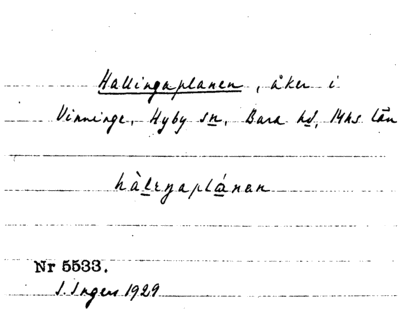 Hallingaplanen, åker i
Vinninge, Hyby sn, Bara hd, Mhs län
Nr 5533.
1929